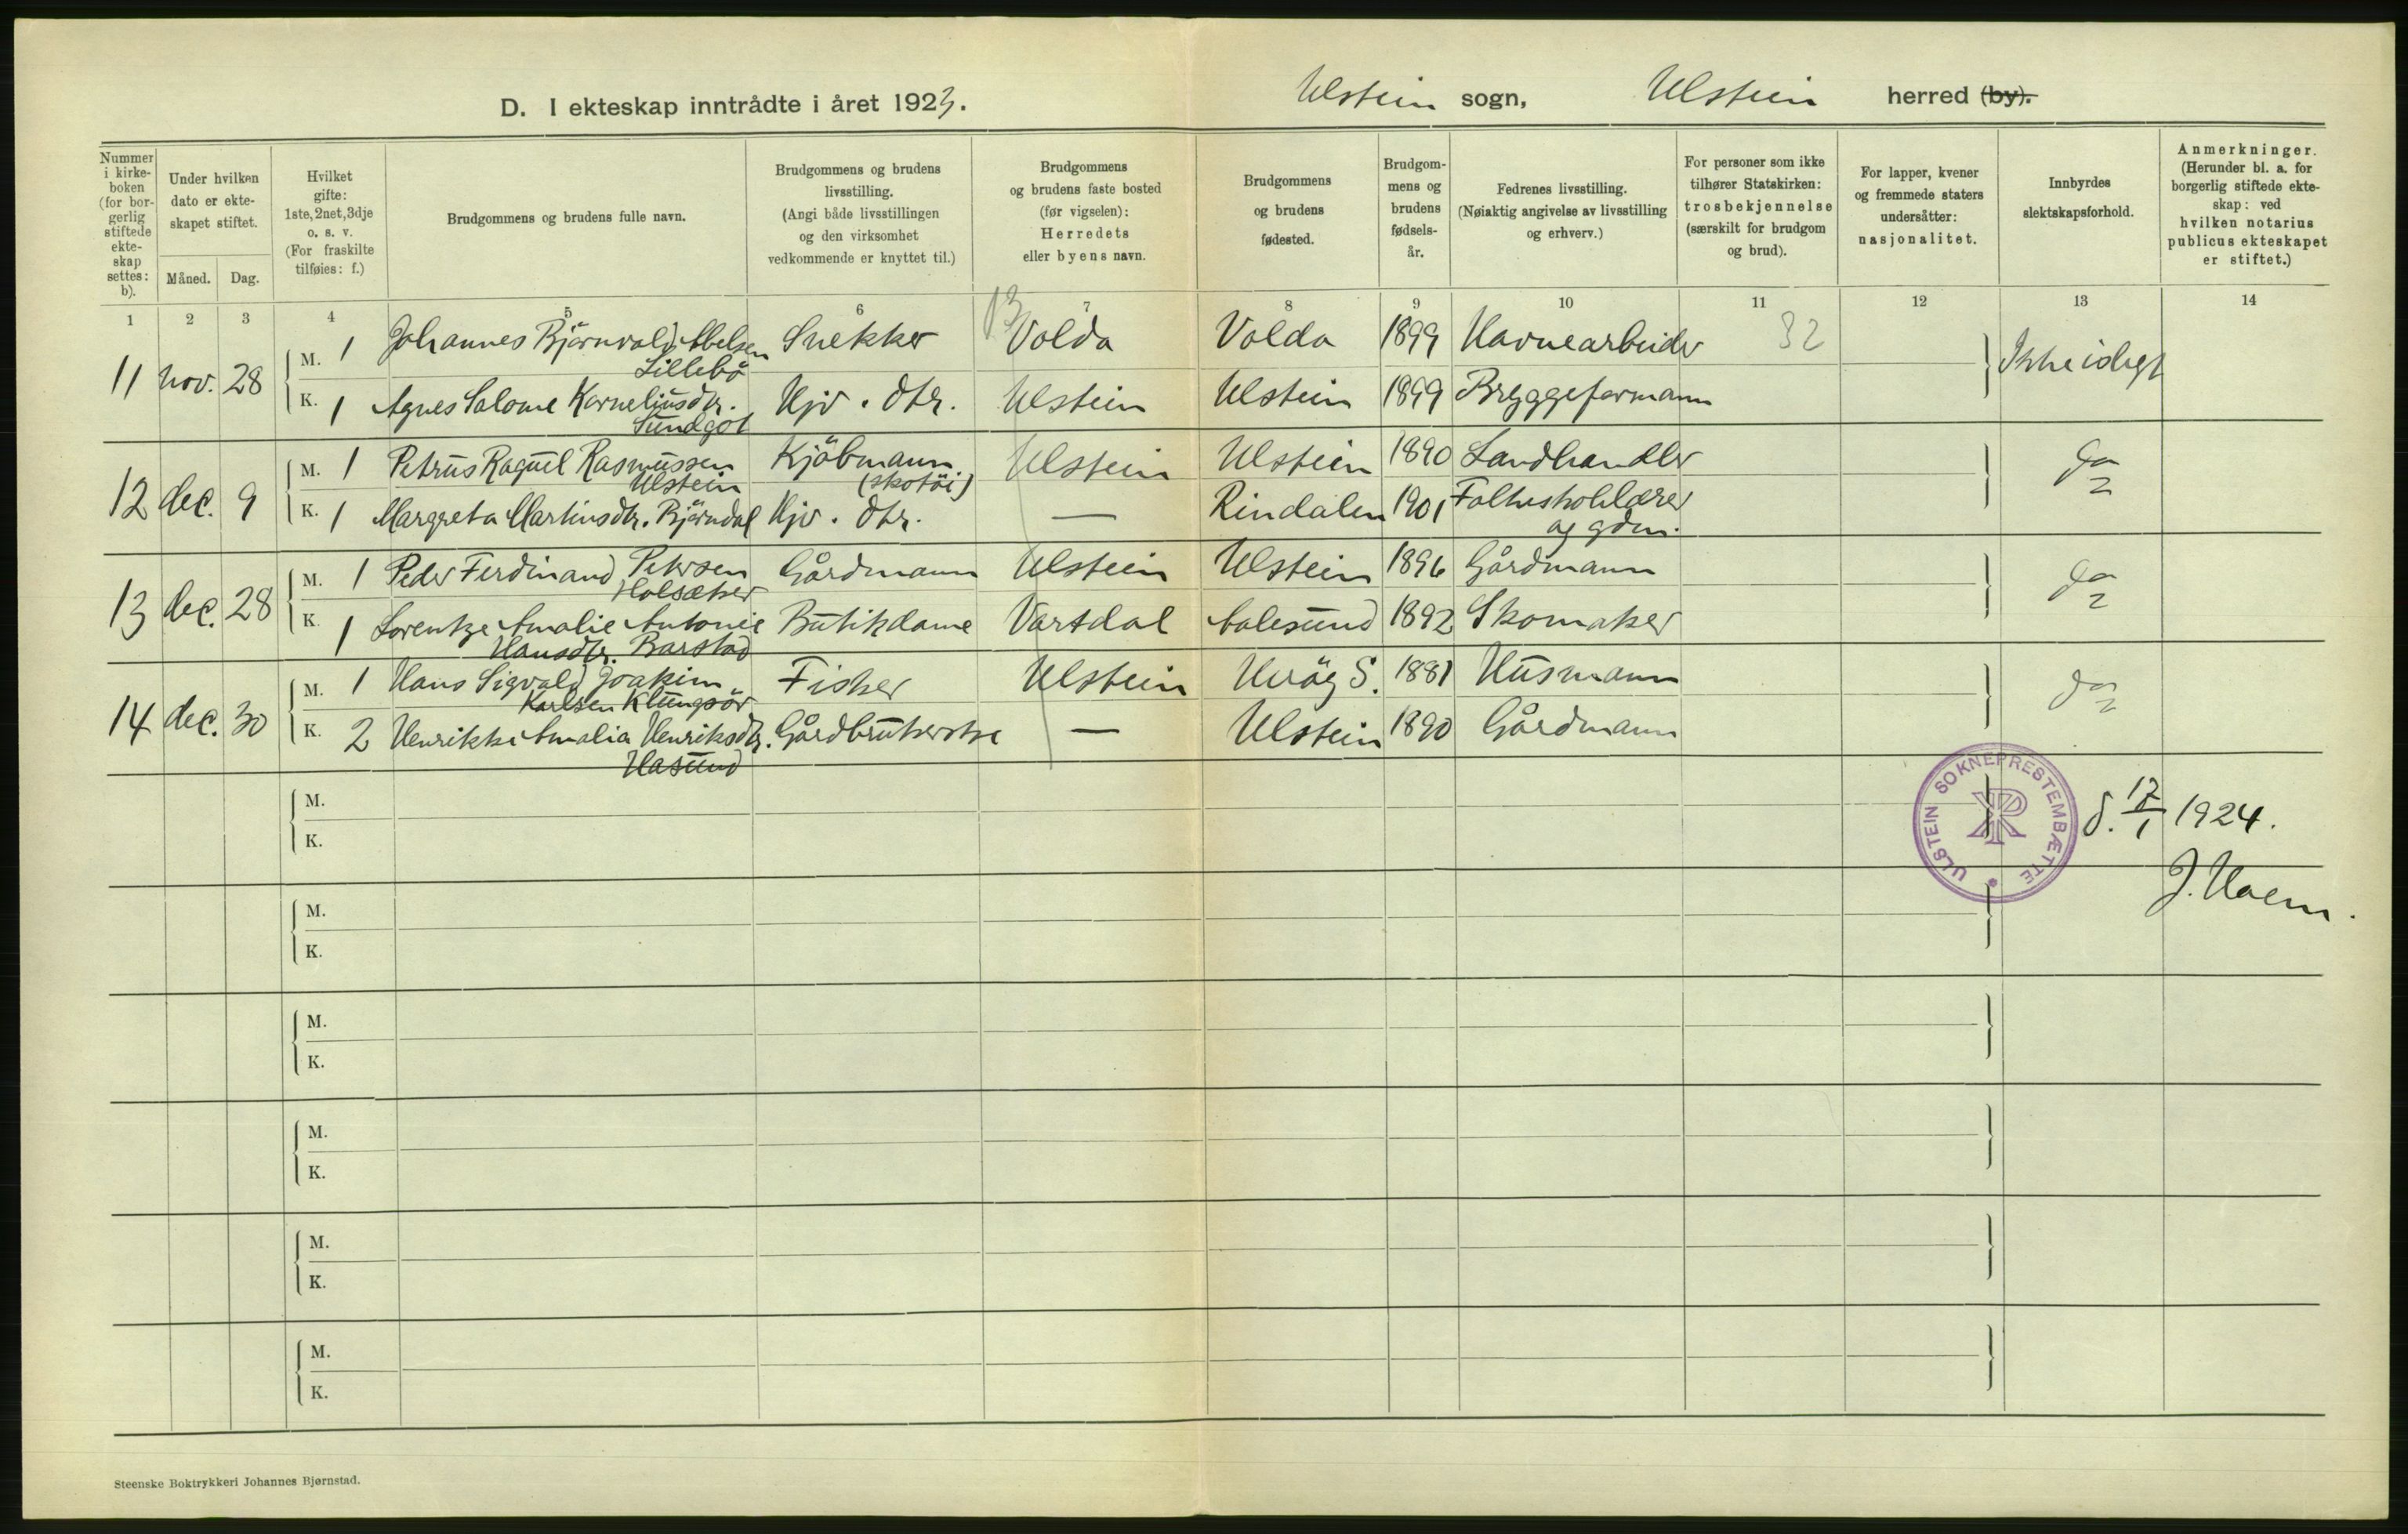 D. I ekteskap inntrådte i året 1923.
Ulstein sogn, Ulstein herred (by).
Nummer i kirke-boken (for bor-gerlig stiftede ekte-skap settes: b).
Under hvilken dato er ekte-skapet stiftet.
Måned. Dag.
Hvilket gifte: 1ste, 2net, 3dje o. s. v. (For fraskilte tilføies: f.)
Brudgommens og brudens fulle navn.
Brudgommens og brudens livsstilling. (Angi både livsstillingen og den virksomhet vedkommende er knyttet til.)
Brudgommens og brudens faste bosted (før vigselen): Herredets eller byens navn.
Brudgommens og brudens fødested.
Brudgom-mens og brudens fødsels-år.
Fedrenes livsstilling. (Nøiaktig angivelse av livsstilling og erhverv.)
For personer som ikke tilhører Statskirken: trosbekjennelse (særskilt for brudgom og brud).
For lapper, kvener og fremmede staters undersåtter: nasjonalitet.
Innbyrdes slektskapsforhold.
Anmerkninger. (Herunder bl. a. for borgerlig stiftede ekte-skap: ved hvilken notarius publicus ekteskapet er stiftet.)
1 2 3 4 5 6 7 8 9 10 11 12 13 14
13
11 nov. 28 M. 1 Johannes Bjørnvald Abelsen Lillebö Snekker Volda Volda 1899 Havnearbeider 32 Ikke islegt
K. 1 Agnes Salome Korneliusdtr. Sundgot Hjv. dtr. Ulstein Ulstein 1899 Bryggeformann
12 dec. 9 M. 1 Petrus Raguel Rasmussen Ulstein Kjöbmann (skotöi) Ulstein Ulstein 1890 Landhandler do
K. 1 Margreta Martinsdtr. Bjørndal Hjv. dtr. — Rindalen 1901 Folkeskolelærer og gdm.
13 dec. 28 M. 1 Peder Ferdinand Petersen Holsæter Gårdmann Ulstein Ulstein 1896 Gårdmann do
K. 1 Lorentze Amalie Antonie Hansdtr. Barstad Butikdame Vartdal Aalesund 1892 Skomaker
14 dec. 30 M. 1 Hans Sigvald Joakim Karlsen Klungsör Fisker Ulstein Heröy S. 1881 Husmann do
K. 2 Henrikke Amalia Henriksdtr. Hasund Gårdbrukerske — Ulstein 1890 Gårdmann
M.
K.
ULSTEIN SOKNEPRESTEMBÆTTE
d. 17/1 1924.
J. Haem.
M.
K.
M.
K.
M.
K.
M.
K.
M.
K.
Steenske Boktrykkeri Johannes Bjørnstad.